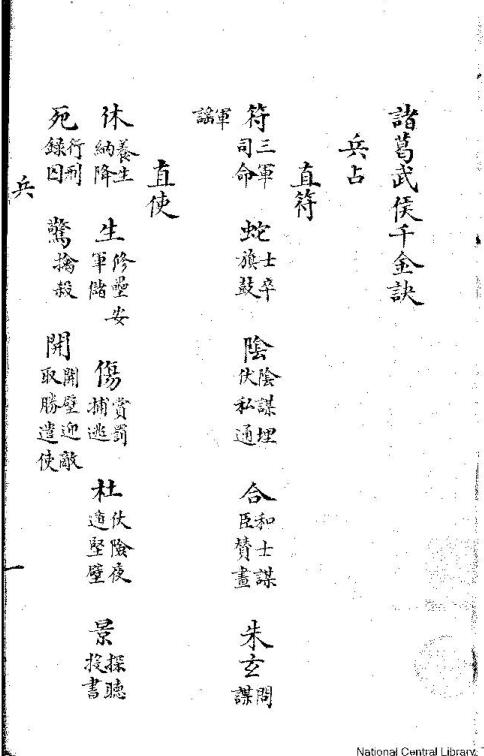 諸葛武侯千金訣
兵占
直符
符三軍司命 蛇士卒旗鼓 陰陰謀埋伏私通 合和士謀臣贊畫 朱玄問謀
軍謡
直使
休養生納降 生修壘安軍儲 傷賞罰捕逃 杜伏險夜遁堅壁 景探聽投書
死行刑錄囚 驚擒殺 開開壁迎敵取勝遣使
兵 一
National Central Library.